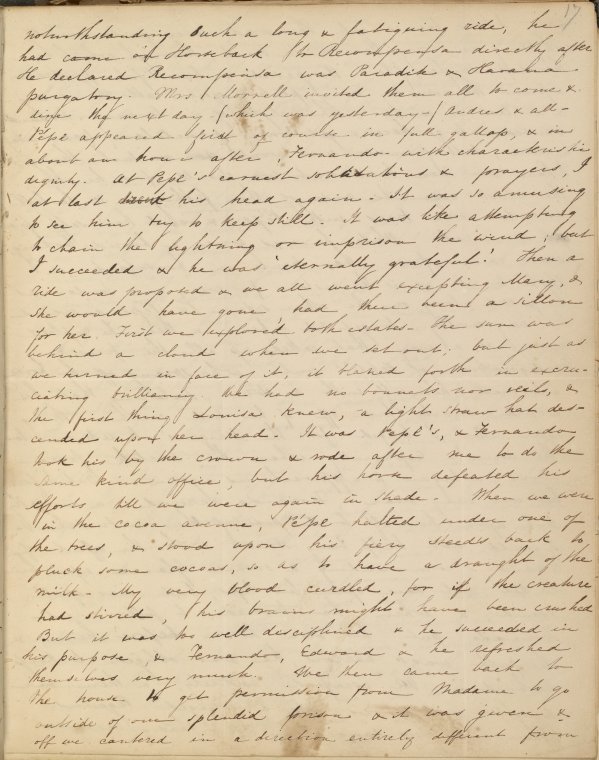 17
notwithstanding such a long & fatiguing ride, he
had come on Horseback to Recompensa directly after
He declared Recompensa was Paradise & Havana
purgatory. Mrs Morrell invited them all to come &
dine the next day (which was yesterday -) Andres & all -
Pépé appeared first of course in full gallop, & in
about an hour after, Fernando with characteristic
dignity. At Pepé's earnest solicitations & prayers, I
at last his head again - It was so amusing
to see him try to keep still. It was like attempting
to chain the lightning or imprison the wind, but
I succeeded & he was 'eternally grateful'. Then a
ride was proposed & we all went excepting Mary, &
she would have gone, had there been a sillon
for her. First we explored both estates - The sun was
behind a cloud when we set out; but just as
we turned in face of it, it blazed forth in excru-
ciating brilliancy. We had no bonnets nor veils, &
the first thing Louisa knew, a light straw hat des-
cended upon her head - It was Pepé's, & Fernando
took his by the crown & rode after me to do the
same kind office, but his horse defeated his
efforts till we were again in shade - When we were
in the cocoa avenue, Pépé halted under one of
the trees, & stood upon his fiery steed's back to
pluck some cocoas, so as to have a draught of the
milk - My very blood curdled, for if the creature
had stirred, his brains might have been crushed
But it was too well disciplined & he succeeded in
his purpose, & Fernando, Edward & he refreshed
themselves very much. We then came back to
the house to get permission from Madame to go
outside of our splendid prison & it was given &
off we cantered in a direction entirely different from